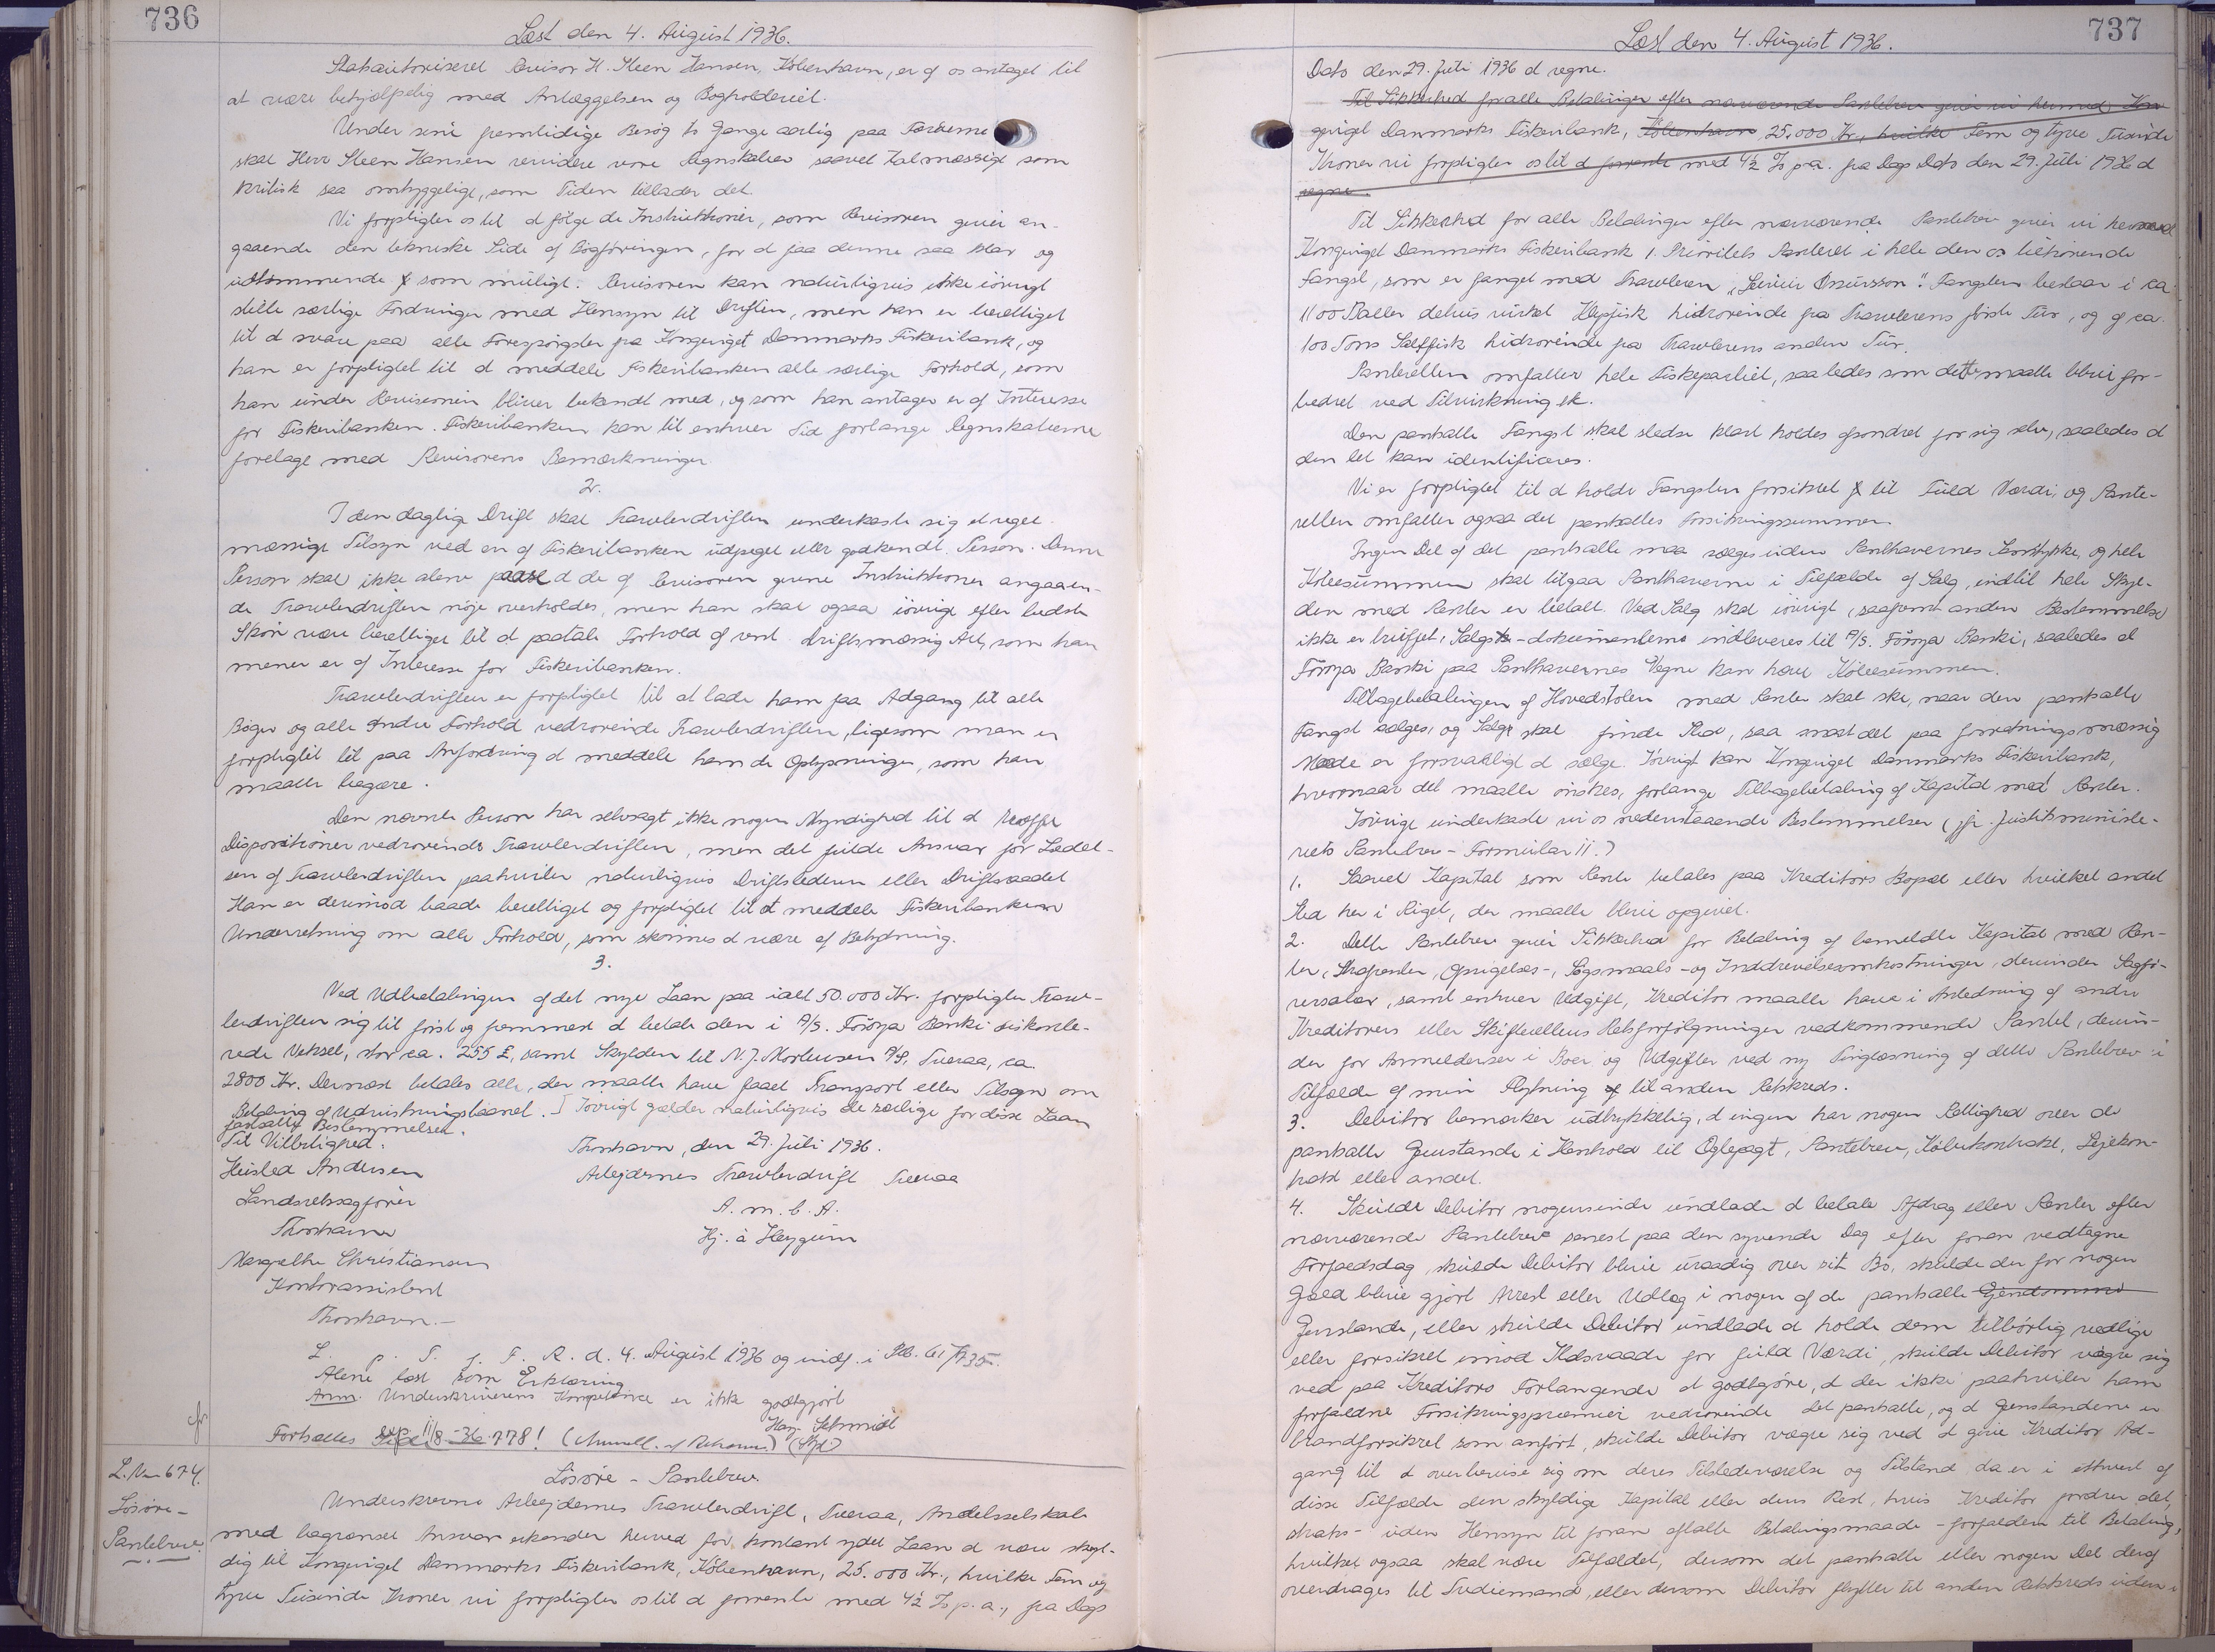 736
Læst den 4. August 1936.
Statsautoriseret Revisor H. Steen Hansen, København, er af os antaget til
at være behjælpelig med Anlæggelsen og Bogholderiet.
Under sine fremtidige Besøg to Gange aarlig paa Færøerne
skal Herr Steen Hansen revidere vore Regnskaber saavel talmæssigt som
kritisk saa omhyggelige, som Tiden tillader det.
Vi forpligter os til at følge de Instruktioner, som Revisoren giver an-
gaaende den tekniske Side af Bogføringen, for at faa denne saa klar og
udtømmende som muligt. Revisoren kan naturligvis ikke iøvrigt
stille særlige Fordringer med Hensyn til Driften, men han er berettiget
til at svare paa alle Forespørgsler fra Kongeriget Danmarks Fiskeribank, og
han er forpligtet til at meddele Fiskeribanken alle særlige Forhold, som
han under Revisionen bliver bekendt med, og som han antager er af Interesse
for Fiskeribanken. Fiskeribanken kan til enhver Tid forlange Regnskaberne
forelagt med Revisorens Bemærkninger
2.
I den daglige Drift skal Trawlerdriften underkaste sig et regel-
mæssigt Tilsyn ved en af Fiskeribanken udpeget eller godkendt Person. Denne
Person skal ikke alene paase at de af Revisoren givne Instruktioner angaaen-
de Trawlerdriften nøje overholdes, men han skal ogsaa iøvrigt efter bedste
Skøn være berettiget til at paatale Forhold af vent. driftsmæssig Art, som han
mener er af Interesse for Fiskeribanken.
Trawlerdriften er forpligtet til at lade ham faa Adgang til alle
Bøger og alle andre Forhold vedrørende Trawlerdriften, ligesom man er
forpligtet til paa Anfordring at meddele ham de Oplysninger, som han
maatte begære.
Den nævnte Person har selvsagt ikke nogen Myndighed til at træffe
Dispositioner vedrørende Trawlerdriften, men det fulde Ansvar for Ledel-
sen af Trawlerdriften paahviler naturligvis Driftslederen eller Driftsraadet
Han er derimod baade berettiget og forpligtet til at meddele Fiskeribanken
Underretning om alle Forhold, som skønnes at være af Betydning.
3.
Ved Udbetalingen af det nye Laan paa ialt 50.000 Kr. forpligter Traw-
lerdriften sig til først og fremmest at betale den i A/S. Føroya Banki diskonte-
rede Veksel, stor ca. 255 £, samt Skylden til N. J. Mortensen A/S, Tveraa, ca.
2800 Kr. Dernæst betales alle, der maatte have faaet Transport eller Tilsagn om
Betaling af Udrustningslaanet. Iøvrigt gælder naturligvis de særlige for disse Laan
fastsatte Bestemmelser.
Til Vitterlighed:
Thorshavn, den 29. Juli 1936.
Heisled Andersen
Arbejdernes Trawlerdrift Tveraa
Landsretssagfører
A. m. b. A.
Thorshavn
Hj. á Heygum
Margrethe Christiansen
Kontorassistent
Thorshavn.-
L. p. T. f. F. R. d. 4. August 1936 og indf. i Pb. 61/735.
Alene læst som Erklæring
Anm. Underskriverens Kompetence er ikke godtgjort
Fortsættes Side 778!
L. Nr 674.
Løsøre-
Pantebrev.
Løsøre - Pantebrev.
Underskrevne Arbejdernes Trawlerdrift, Tveraa, Andelsselskab
med begrænset Ansvar erkender herved for kontant ydet Laan at være skyl-
dig til Kongeriget Danmarks Fiskeribank, København, 25.000 Kr., hvilke Fem og
tyve Tusinde Kroner vi forpligter os til at forrente med 4½ % p.a., fra Dags
737
Læst den 4. August 1936.
Dato den 29. Juli 1936 at regne.
Til Sikkerhed for alle Betalinger efter nærværende Pantebrev giver vi hermed Kon
geriget Danmarks Fiskeribank, København 25.000 Kr., hvilke Fem og tyve Tusinde
Kroner vi forpligter os til at forrente med 4½ % p.a. fra Dags Dato den 29. Juli 1936 at
regne.
Til Sikkerhed for alle Betalinger efter nærværende Pantebrev giver vi hermed
Kongeriget Danmarks Fiskeribank 1. Prioritets Panteret i hele den os tilhørende
Fangst, som er fanget med Trawleren "Leivur Øssursson". Fangsten bestaar i ca.
1100 Baller delvis virket Klipfisk hidrørende fra Trawlerens første Tur, og af ca.
100 Tons Saltfisk hidrørende fra Trawlerens anden Tur.
Panteretten omfatter hele Fiskepartiet, saaledes som dette maatte blive for-
bedret ved Tilvirkning etc.
Den pantsatte Fangst skal stedse klart holdes afsondret for sig selv, saaledes at
den let kan identificeres.
Vi er forpligtet til at holde Fangsten forsikret til Fuld Værdi, og Pante-
retten omfatter ogsaa det pantsattes Forsikringssummer.
Ingen Del af det pantsatte maa sælges uden Panthavernes Samtykke, og hele
Købesummen skal tilgaa Panthaverne i Tilfælde af Salg, indtil hele Skyl-
den med Renter er betalt. Ved Salg skal iøvrigt, saafremt anden Bestemmelse
ikke er truffet, Salgs-dokumenterne indleveres til A/S. Føroya Banki, saaledes at
Føroya Banki paa Panthavernes Vegne kan hæve Købesummen.
Tilbagebetalingen af Hovedstolen med Renter skal ske, naar den pantsatte
Fangst sælges, og Salget skal finde Sted, saa snart det paa forretningsmæssig
Maade er forsvarligt at sælge. Iøvrigt kan Kongeriget Danmarks Fiskeribank,
hvornaar det maatte ønskes, forlange Tilbagebetaling af Kapital med Renter.
Iøvrigt underkaste vi os nedenstaaende Bestemmelser (jfr. Justitsministe-
riets Pantebrev - Formular II.)
1. Saavel Kapital som Rente betales paa Kreditors Bopæl eller hvilket andet
Sted her i Riget, der maatte blive opgivet.
2. Dette Pantebrev giver Sikkerhed for Betaling af bemeldte Kapital med Ren-
ter, Strafrenter, Opsigelses-, Søgsmaals- og Inddrivelsesomkostninger, derunder Sagfø-
rersalær, samt enhver Udgift, Kreditor maatte have i Anledning af andre
Kreditorers eller Skifterettens Retsforfølgninger vedkommende Pantet, derun-
der for Anmeldelser i Boer og Udgifter ved ny Tinglæsning af dette Pantebrev i
Tilfælde af min Flytning til anden Retskreds.
3. Debitor bemærker udtrykkelig, at ingen har nogen Rettighed over de
pantsatte Genstande i Henhold til Ægtepagt, Pantebrev, Købekontrakt, Lejekon-
trakt eller andet.
4. Skulde Debitor nogensinde undlade at betale Afdrag eller Renter efter
nærværende Pantebrev senest paa den syvende Dag efter foran vedtagne
Forfaldsdag, skulde Debitor blive uraadig over sit Bo, skulde der for nogen
Gæld blive gjort Arrest eller Udlæg i nogen af de pantsatte Ejendomme
Genstande, eller skulde Debitor undlade at holde dem tilbørlig vedlige
eller forsikret imod Ildsvaade for fuld Værdi, skulde Debitor vægre sig
ved paa Kreditors Forlangende at godtgøre, at der ikke paahviler ham
forfaldne Forsikringspræmier vedrørende det pantsatte, og at Genstandene er
brandforsikret som anført, skulde Debitor vægre sig ved at give Kreditor Ad-
gang til at overbevise sig om deres Tilstedeværelse og Tilstand, da er i ethvert af
disse Tilfælde den skyldige Kapital eller dens Rest, hvis Kreditor fordrer det,
straks - uden Hensyn til foran aftalte Betalingsmaade - forfalden til Betaling,
hvilket ogsaa skal være Tilfældet, dersom det pantsatte eller nogen Del deraf
overdrages til Trediemand, eller dersom Debitor flytter til anden Retskreds uden